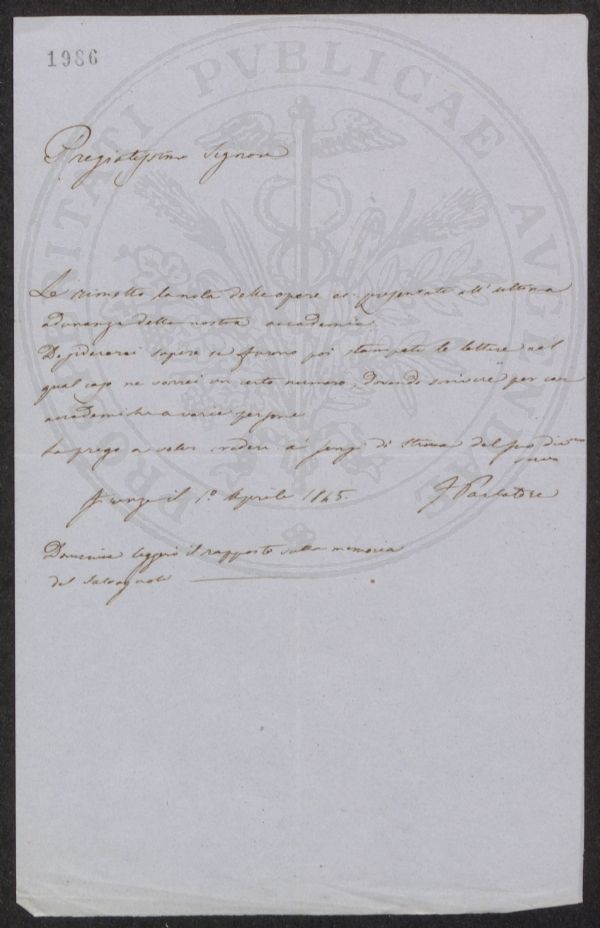 1986
PROSPERITATI PVBLICAE AVGENDAE
Pregiatissimo Signore
Le rimetto la nota delle opere presentate all'ultima
adunanza della nostra accademia
Desidererei sapere se furono poi stampate le lettere nel
qual caso ne vorrei un certo numero, dovendo scrivere per
accademiche a varie persone
La prego a voler credere a' sensi di stima del suo
Firenze il 1º Aprile 1845. F Parlatore
Domenica leggerò il rapporto sulla memoria
del Salvagnoli